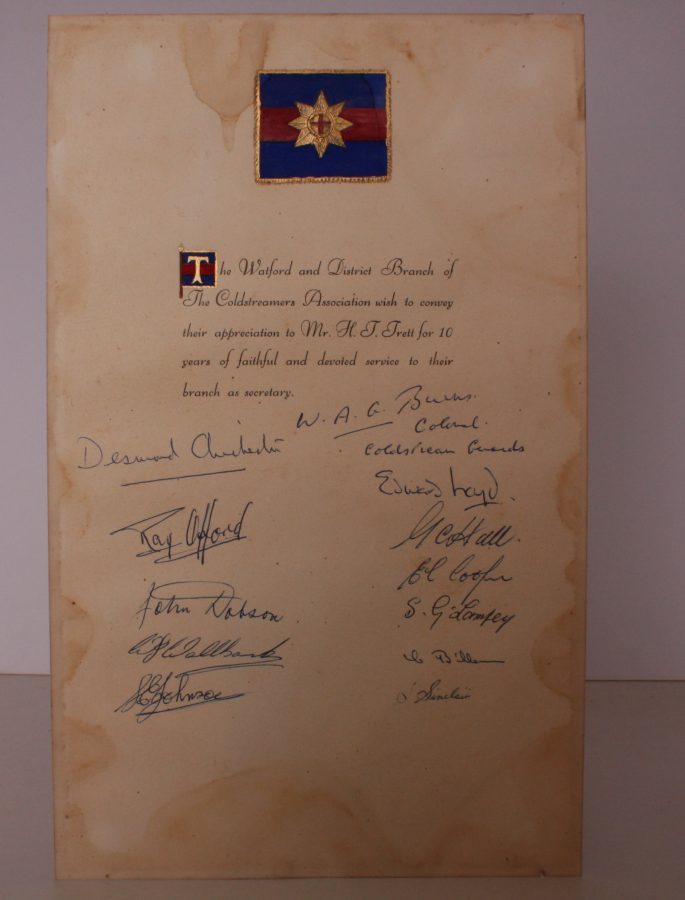 The Watford and District Branch of
The Coldstreamers Association wish to convey
their appreciation to Mr. H. T. Trett for 10
years of faithful and devoted service to their
branch as secretary.
W. A. G. Burns.
Colonel.
Coldstream Guards
Desmond Chichester
Edward Lloyd.
Ray Offord
G C Hall.
Cooper
John Dobson
S. G. Lampey
Wallbank
Johnson
Sinclair